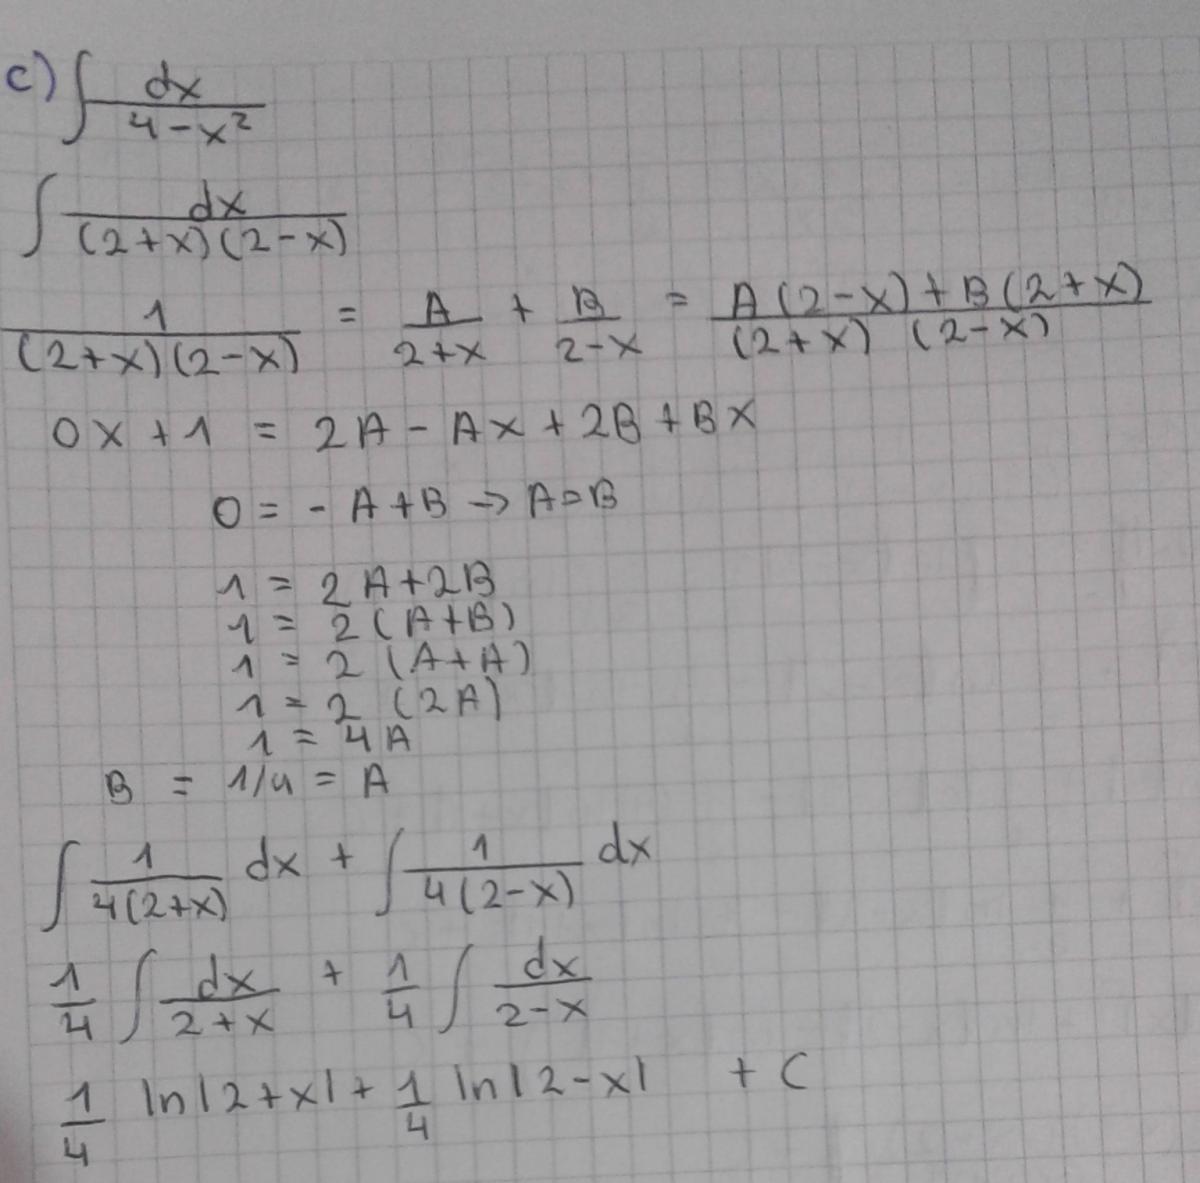 c) ∫ dx / 4-x²
∫ dx / (2+x)(2-x)
1 / (2+x)(2-x) = A / 2+x + B / 2-x = A(2-x)+B(2+x) / (2+x) (2-x)
0x+1 = 2A-Ax+2B+Bx
0 = -A+B → A=B
1 = 2A+2B
1 = 2(A+B)
1 = 2(A+A)
1 = 2(2A)
1 = 4A
B = 1/4 = A
∫ 1 / 4(2+x) dx + ∫ 1 / 4(2-x) dx
1/4 ∫ dx / 2+x + 1/4 ∫ dx / 2-x
1/4 ln|2+x| + 1/4 ln|2-x| + C